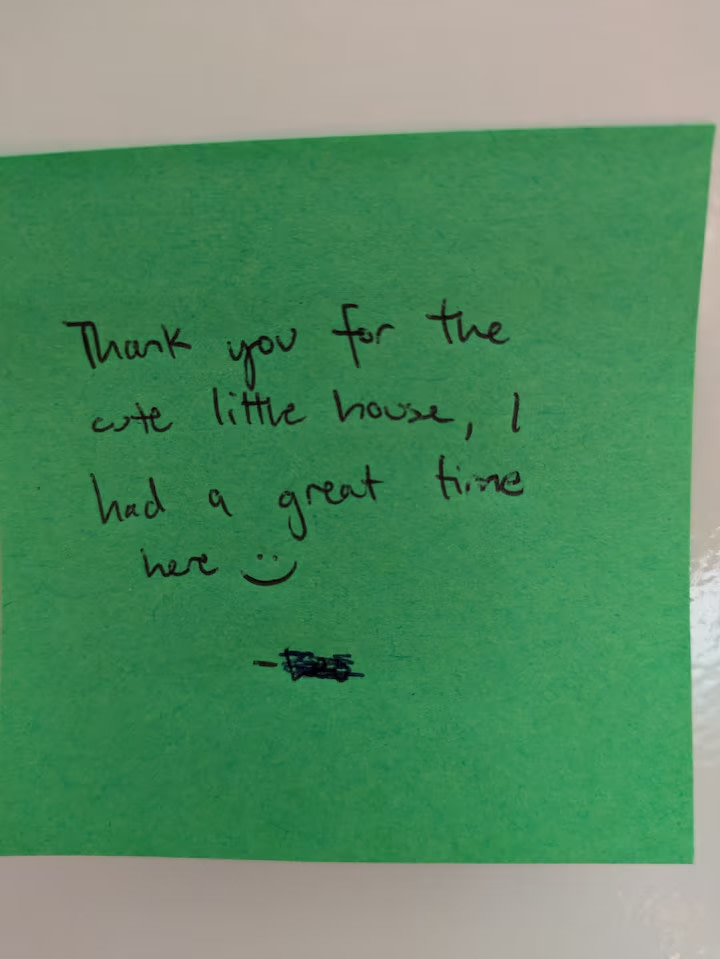 Thank you for the
cute little house, I
had a great time
here :)
-